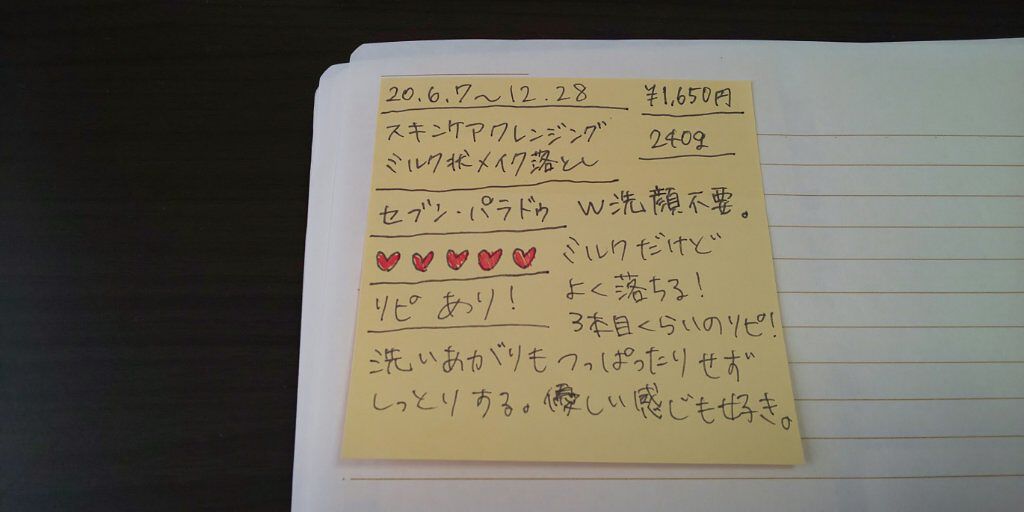 20.6.7〜12.28
¥1,650円
スキンケアクレンジング
240g
ミルク状メイク落とし
セブン・パラドゥ
W洗顔不要。
♥♥♥♥♥
ミルクだけど
よく落ちる!
リピあり!
3本目くらいのリピ!
洗いあがりもつっぱったりせず
しっとりする。優しい感じも好き。